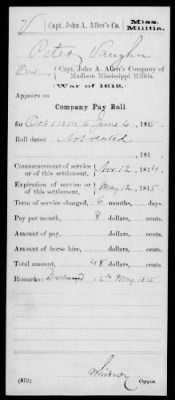 V | Capt. John A. Allen's Co. | Miss. Militia.
Peter Vaughn
Capt. John A. Allen's Company of
Madison Mississippi Militia.
War of 1812.
Appears on
Company Pay Roll
for to June 1815.
Roll dated Not dated
, 181
Commencement of service
or of this settlement, Nov 12, 1814
Expiration of service or
of this settlement, May 12, 1815.
Term of service charged, 6 months, days.
Pay per month, 8 dollars, cents.
Amount of pay, dollars, cents.
Amount of horse hire, dollars, cents.
Total amount, 48 dollars, cents.
Remarks: Discharged 12th May 1815
Whitney
(472) Copyist.